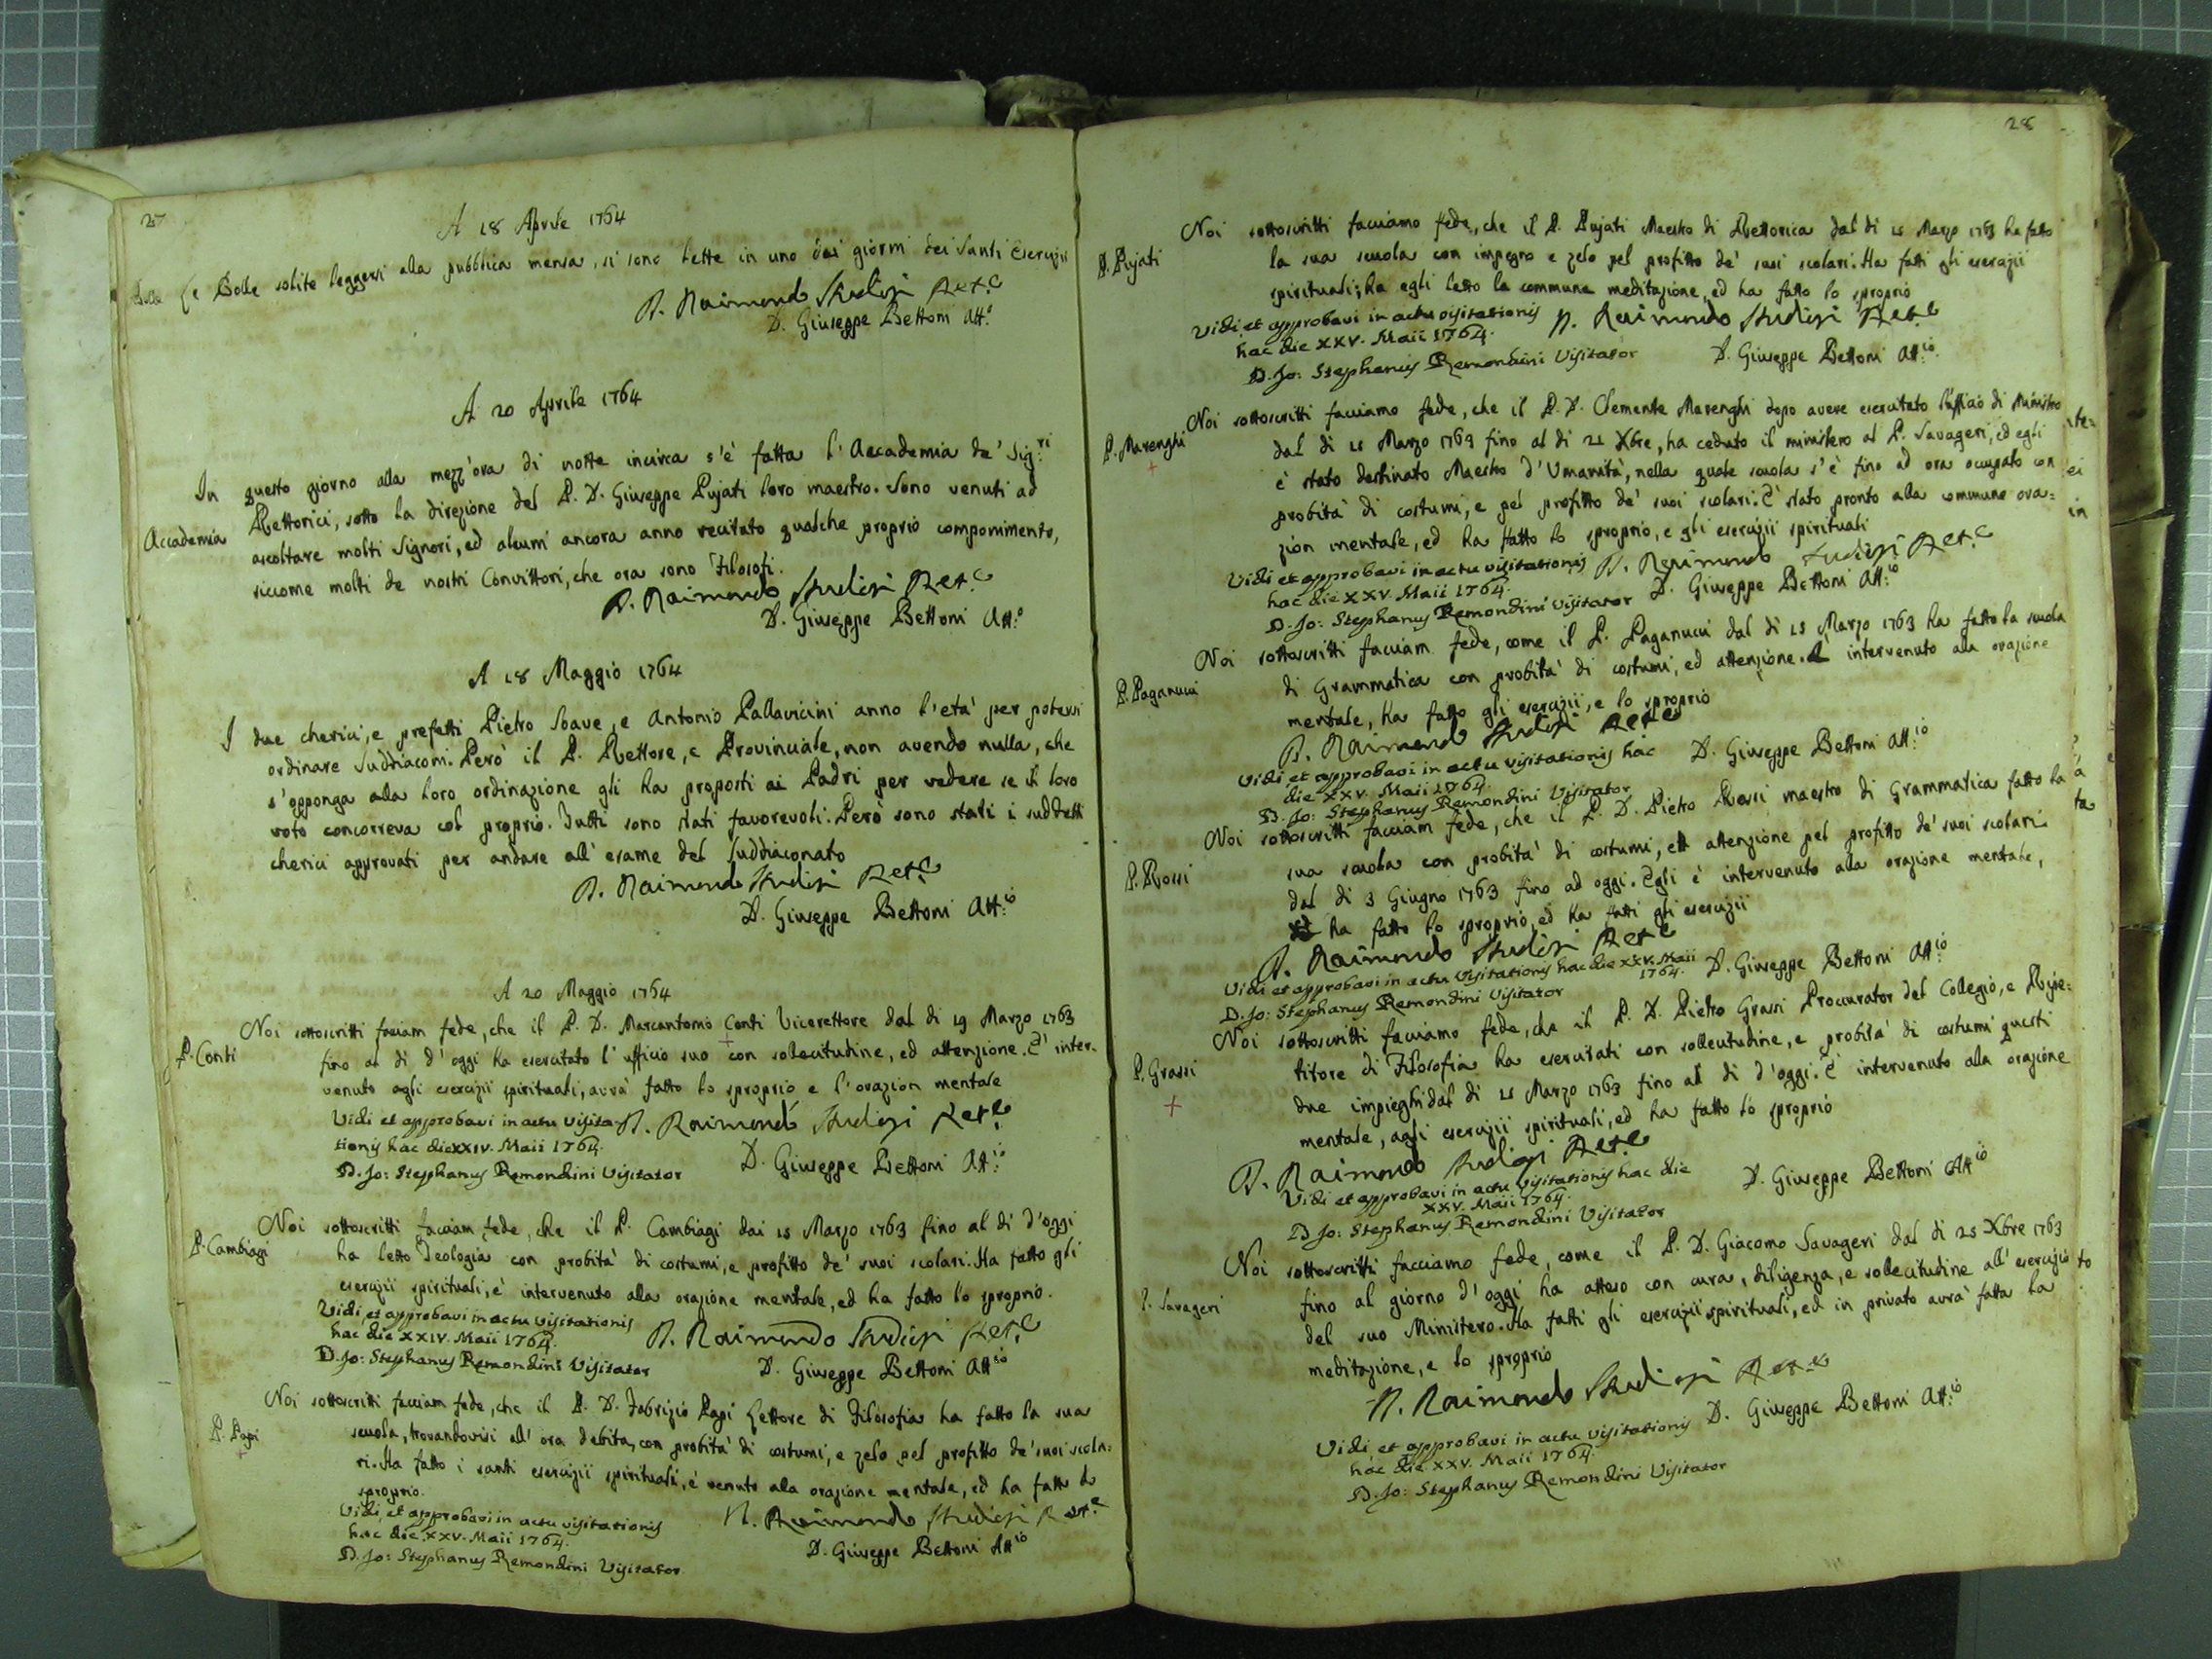 27
A 18 Aprile 1764
Bolle
Le Bolle solite leggersi alla pubblica mensa, si sono lette in uno dei giorni dei Santi Esercizii
D. Raimondo Studiosi Rett.e
D. Giuseppe Bettoni Att.o
A 20 Aprile 1764
In questo giorno alla mezz'ora di notte incirca s'è fatta l'Accademia de' Sig.ri
Rettorici, sotto la direzione del P. D. Giuseppe Pujati loro maestro. Sono venuti ad
Accademia
ascoltare molti Signori, ed alcuni ancora anno recitato qualche proprio componimento,
siccome molti de nostri Convittori, che ora sono Filosofi.
D. Raimondo Studiosi Rett.e
D. Giuseppe Bettoni Att.o
A 18 Maggio 1764
I due cherici, e prefetti Pietro Soave, e Antonio Pallavicini anno l'età per potersi
ordinare Suddiaconi. Però il P. Rettore, e Provinciale, non avendo nulla, che
s'opponga alla loro ordinazione gli ha proposti ai Padri per vedere se il loro
voto concorreva col proprio. Tutti sono stati favorevoli. Però sono stati i suddetti
cherici approvati per andare all'esame del Suddiaconato
D. Raimondo Studiosi Rett.e
D. Giuseppe Bettoni Att.io
A 20 Maggio 1764
Noi sottoscritti facciam fede, che il P. D. Marcantonio Conti Vicerettore dal di 19 Marzo 1763
P. Conti
fino al di d'oggi ha esercitato l'ufficio suo con solecitudine, ed attenzione. E' inter-
venuto agli esercizii spirituali, avrà fatto lo sproprio e l'orazion mentale
Vidi et approbavi in actu visita-
tionis hac die XXIV. Maii 1764.
D. Jo: Stephanus Remondini Visitator
D. Raimondo Studiosi Rett.e
D. Giuseppe Bettoni Att.io
Noi sottoscritti facciam fede, che il P. Cambiagi dai 15 Marzo 1763 fino al di d'oggi
P. Cambiagi
ha letto Teologia con probità di costumi, e profitto de' suoi scolari. Ha fatto gli
esercizii spirituali, è intervenuto alla orazione mentale, ed ha fatto lo sproprio.
Vidi, et approbavi in actu visitationis
hac die XXIV. Maii 1764.
D. Jo: Stephanus Remondini Visitator
D. Raimondo Studiosi Rett.e
D. Giuseppe Bettoni Att.io
Noi sottoscritti facciam fede, che il P. D. Fabrizio Papi Lettore di Filosofia ha fatto la sua
P. Papi
scuola, trovandovisi all'ora debita, con probità di costumi, e zelo pel profitto de' suoi scola=
ri. Ha fatto i santi esercizii spirituali, è venuto alla orazione mentale, ed ha fatto lo
sproprio.
Vidi, et approbavi in actu visitationis
hac die XXV. Maii 1764.
D. Jo: Stephanus Remondini Visitator
D. Raimondo Studiosi Rett.e
D. Giuseppe Bettoni Att.io
28
Noi sottoscritti facciamo fede, che il P. Pujati Maestro di Rettorica dal di 15 Marzo 1763 ha fatto
P. Pujati
la sua scuola con impegno e zelo pel profitto de' suoi scolari. Ha fatti gli esercizii
spirituali; ha egli letto la commune meditazione, ed ha fatto lo sproprio
Vidi, et approbavi in actu visitationis
hac die XXV. Maii 1764.
D. Jo: Stephanus Remondini Visitator
D. Raimondo Studiosi Rett.e
D. Giuseppe Bettoni Att.io
Noi sottoscritti facciamo fede, che il P. D. Clemente Marenghi dopo avere esercitato l'ufficio di Ministro
P. Marenghi
dal di 15 Marzo 1763 fino al di 21 Xbre, ha ceduto il ministero al P. Savageri, ed egli
è stato destinato Maestro d'Umanità, nella quale scuola s'è fino ad ora occupato con
probità di costumi, e pel profitto de' suoi scolari. E' stato pronto alla commune ora=
zion mentale, ed ha fatto lo sproprio, e gli esercizii spirituali
Vidi et approbavi in actu visitationis
hac die XXV. Maii 1764.
D. Jo: Stephanus Remondini Visitator
D. Raimondo Studiosi Rett.e
D. Giuseppe Bettoni Att.io
Noi sottoscritti facciam fede, come il P. Paganucci dal di 15 Marzo 1763 ha fatto la scuola
P. Paganucci
di Grammatica con probità di costumi, ed attenzione. È intervenuto alla orazione
mentale, ha fatto gli esercizii, e lo sproprio
D. Raimondo Studiosi Rett.e
Vidi et approbavi in actu visitationis hac
die XXV. Maii 1764.
D. Jo: Stephanus Remondini Visitator
D. Giuseppe Bettoni Att.io
Noi sottoscritti facciam fede, che il P. D. Pietro Rossi maestro di Grammatica fatto ha la
P. Rossi
sua scuola con probità di costumi, ed attenzione pel profitto de' suoi scolari
dal di 3 Giugno 1763 fino ad oggi. Egli è intervenuto alla orazione mentale,
ha fatto lo sproprio, ed ha fatti gli esercizii
D. Raimondo Studiosi Rett.e
Vidi et approbavi in actu visitationis hac die XXV. Maii
1764.
D. Jo: Stephanus Remondini Visitator
D. Giuseppe Bettoni Att.io
Noi sottoscritti facciamo fede, che il P. D. Pietro Grassi Proccurator del Collegio, e Ripe=
P. Grassi
titore di Filosofia ha esercitati con sollecitudine, e probità di costumi questi
due impieghi dal di 15 Marzo 1763 fino al di d'oggi. E' intervenuto alla orazione
mentale, agli esercizii spirituali, ed ha fatto lo sproprio
D. Raimondo Studiosi Rett.e
Vidi et approbavi in actu visitationis hac die
XXV. Maii 1764.
D. Jo: Stephanus Remondini Visitator
D. Giuseppe Bettoni Att.io
Noi sottoscritti facciamo fede, come il P. D. Giacomo Savageri dal di 25 Xbre 1763
P. Savageri
fino al giorno d'oggi ha atteso con cura, diligenza, e sollecitudine all'esercizio
del suo Ministero. Ha fatti gli esercizii spirituali, ed in privato avrà fatta la
meditazione, e lo sproprio
D. Raimondo Studiosi Rett.e
D. Giuseppe Bettoni Att.io
Vidi et approbavi in actu visitationis
hac die XXV. Maii 1764.
D. Jo: Stephanus Remondini Visitator